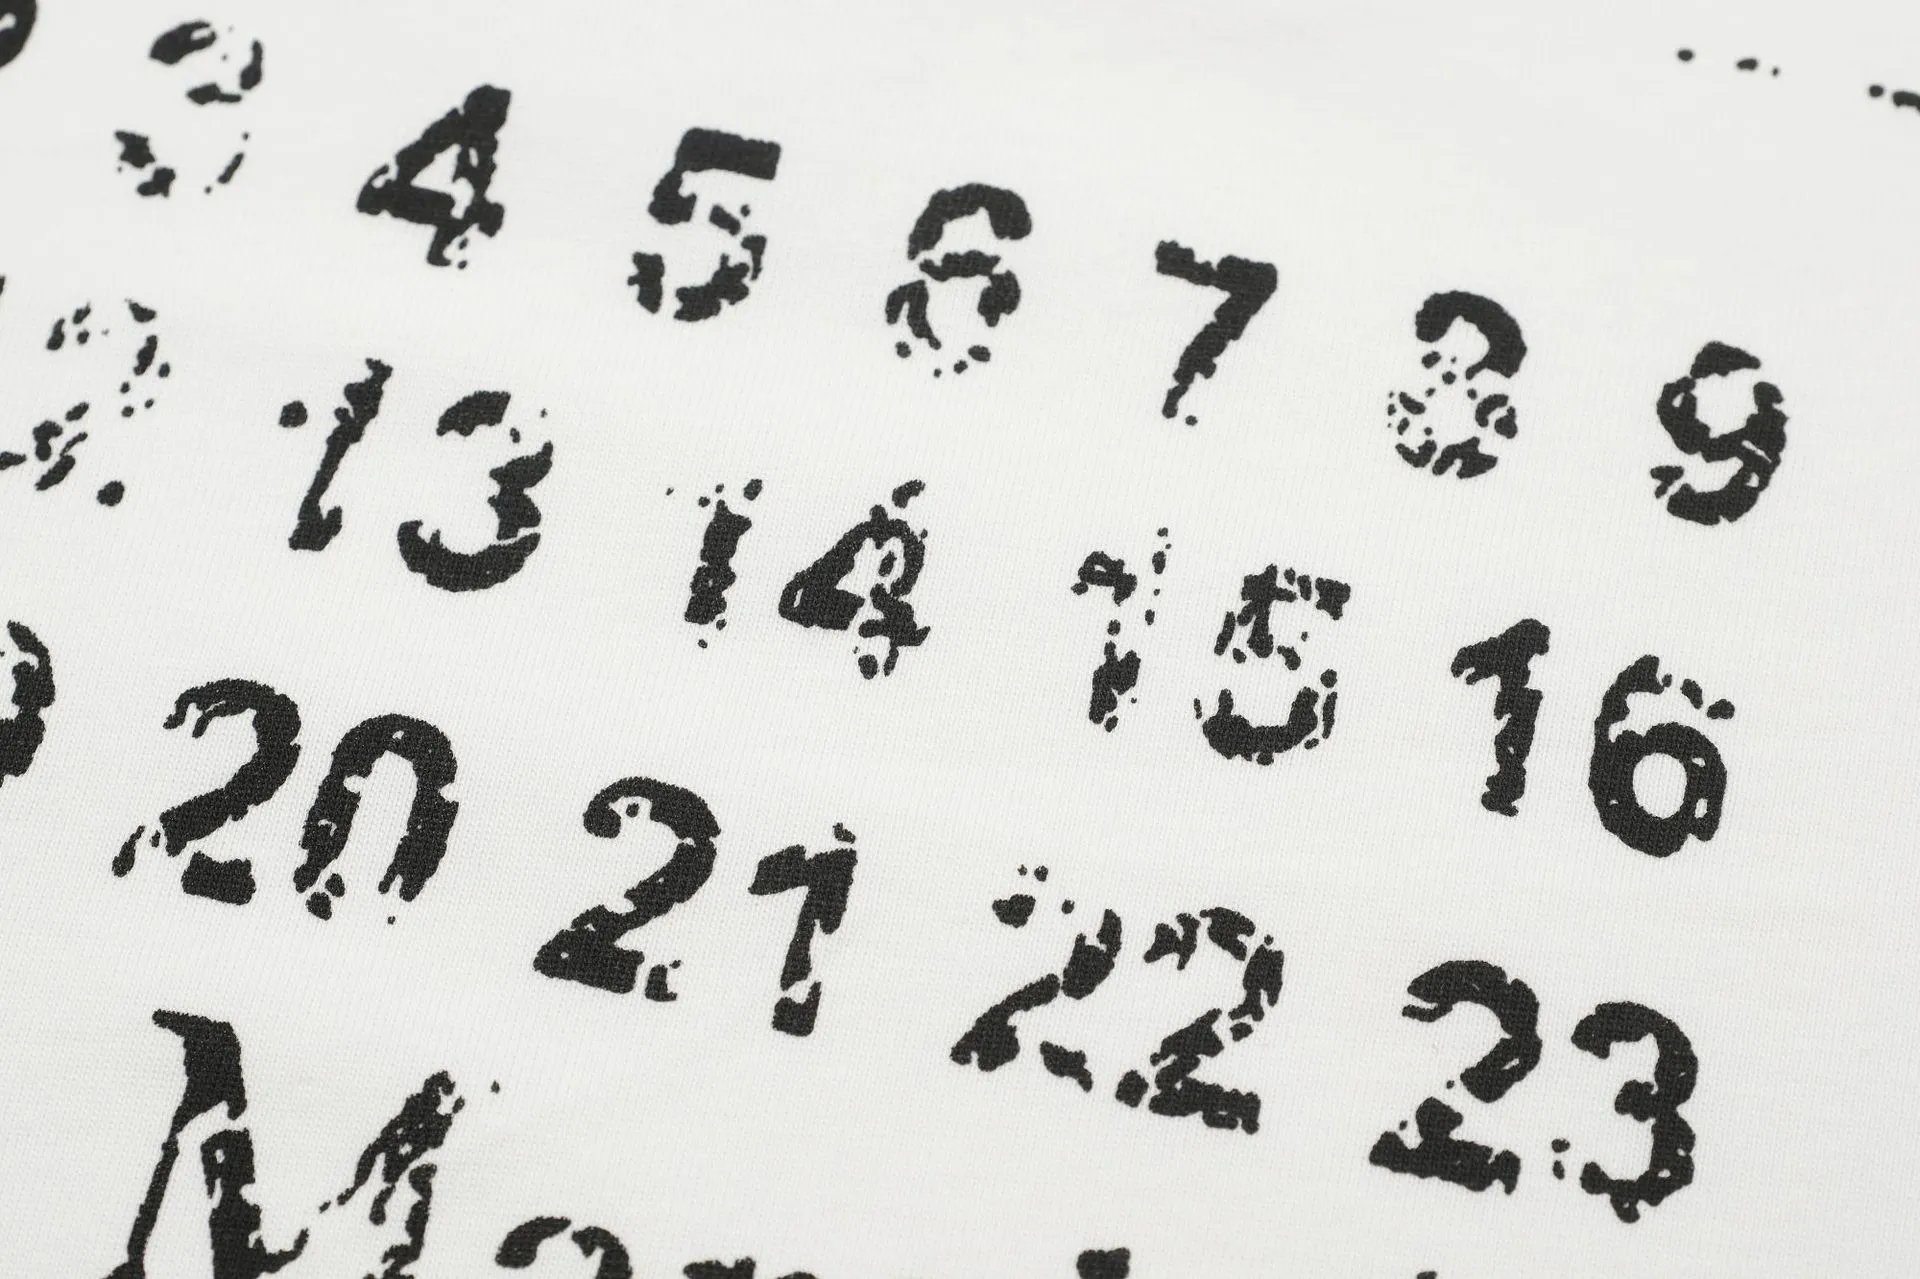 3 4 5 6 7 8 9
13 14 15 16
20 21 22 23